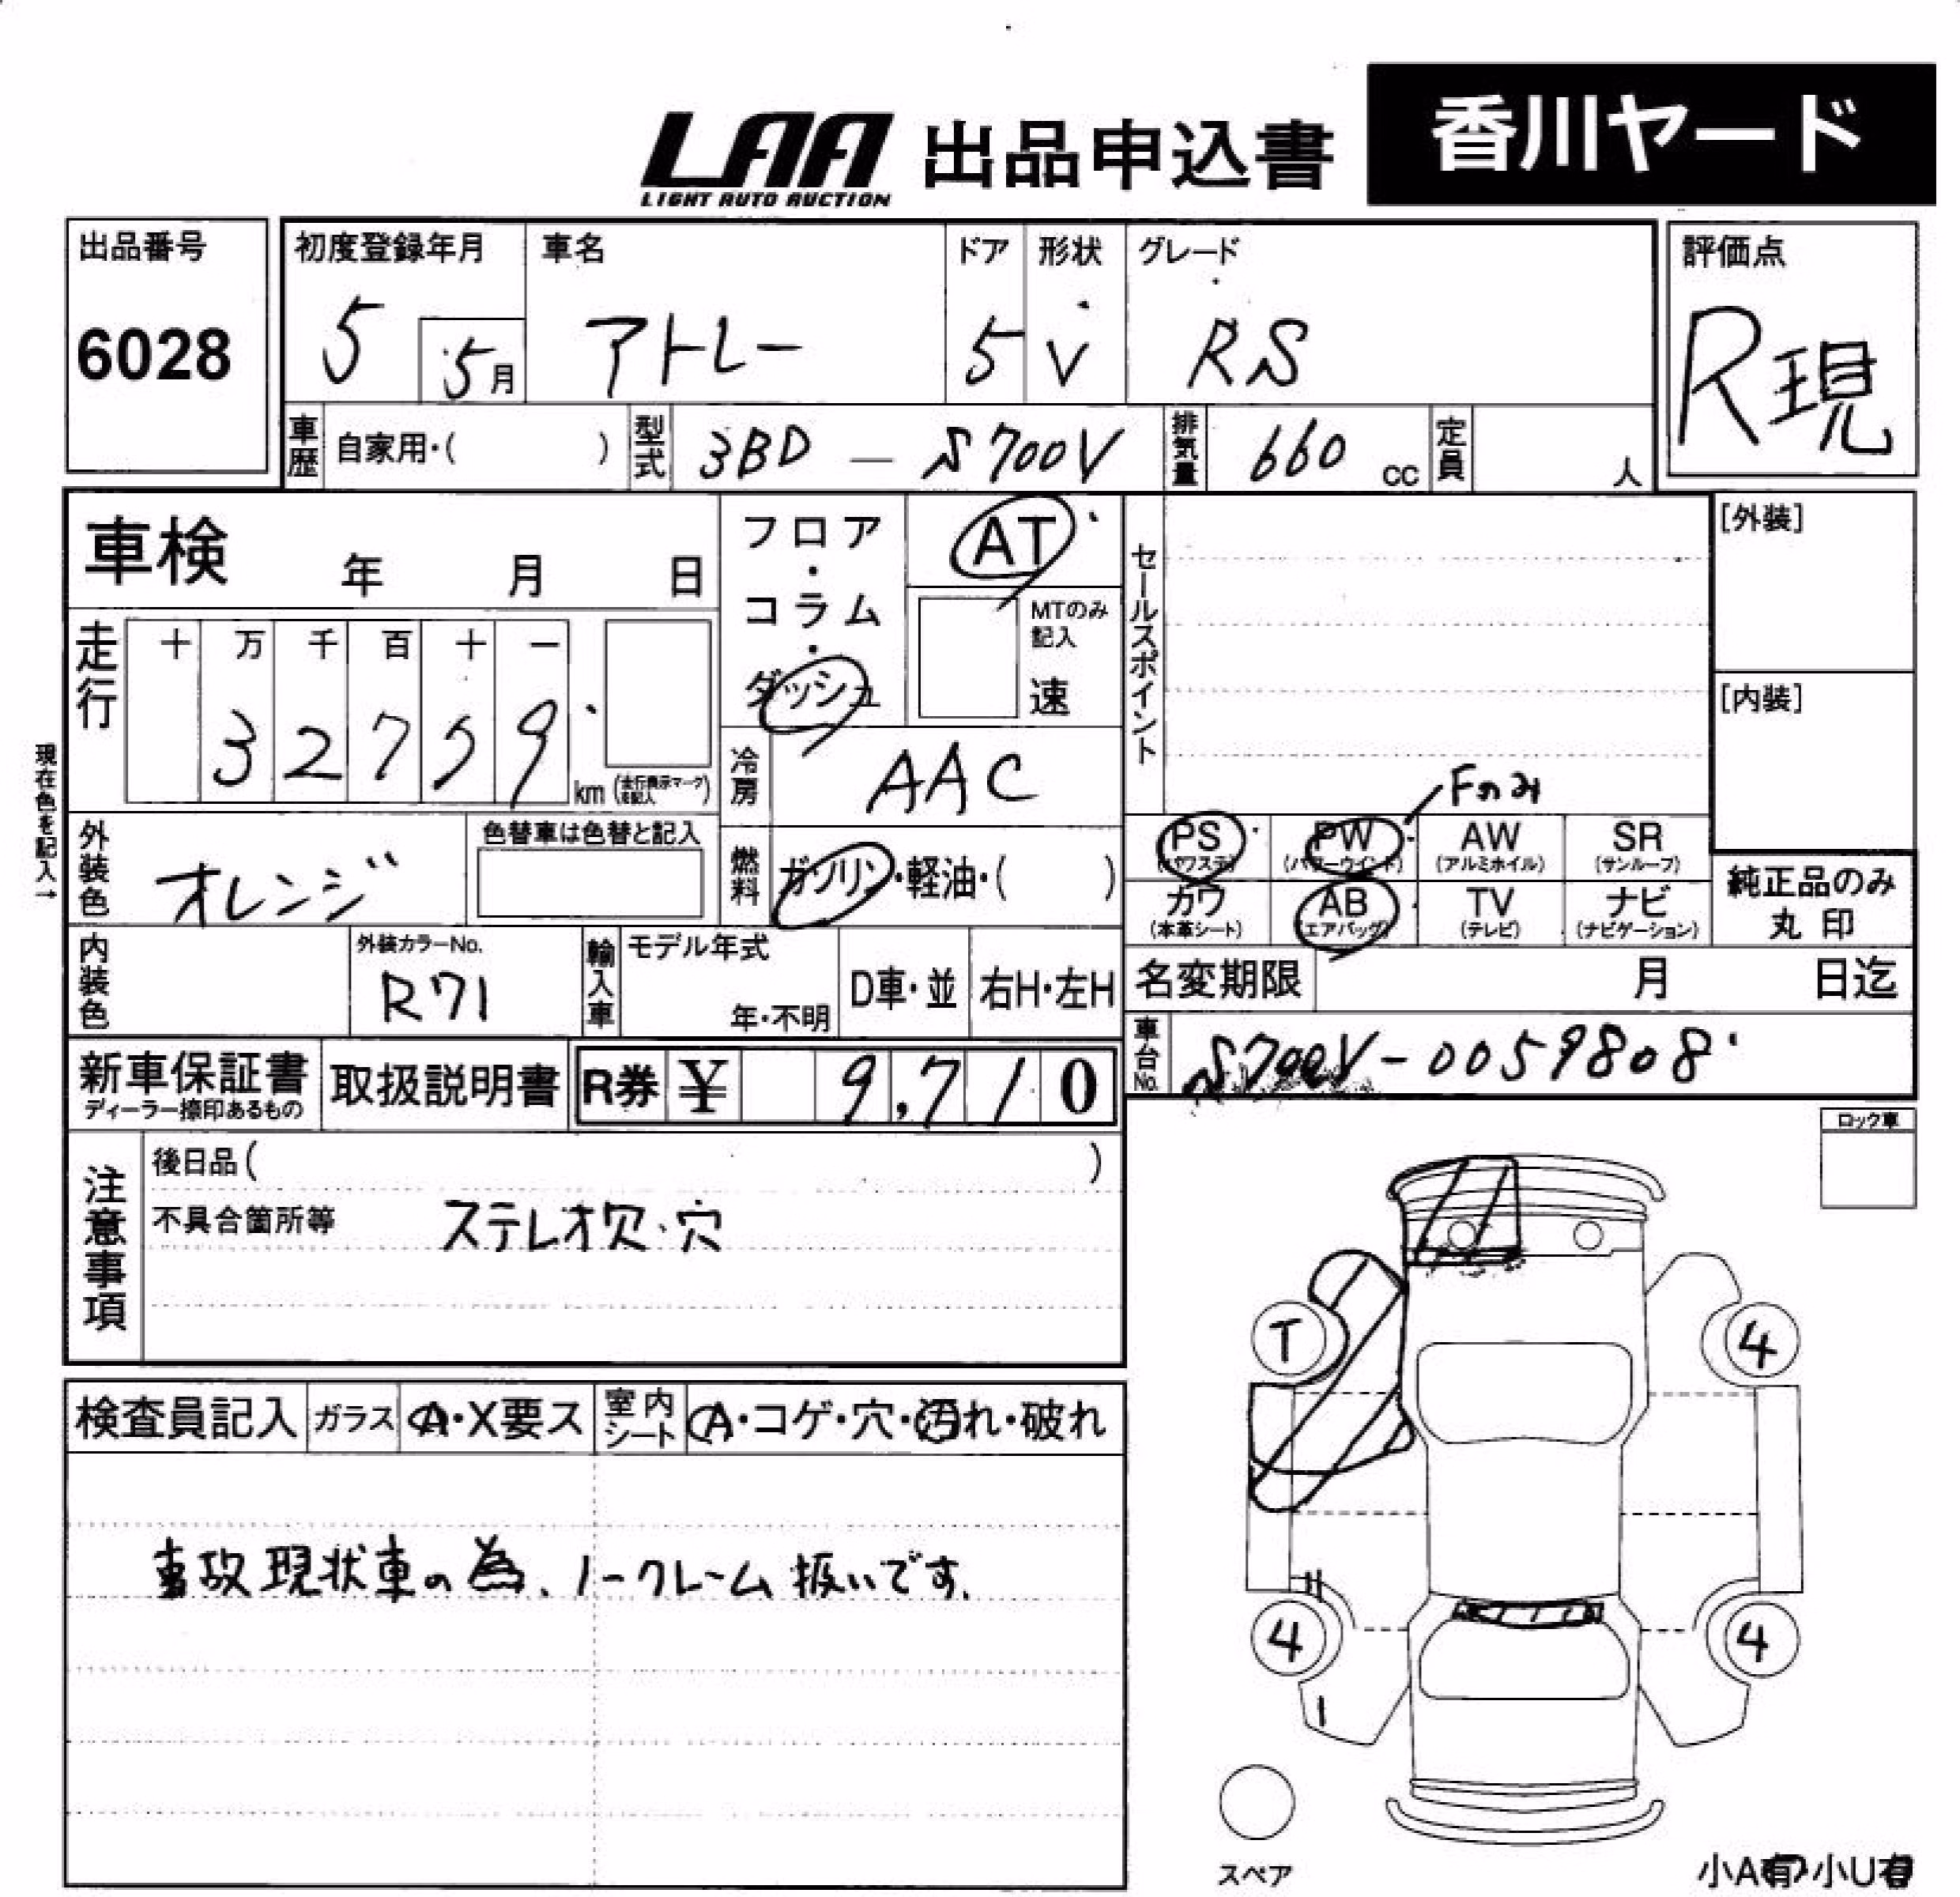 LAA 出品申込書 香川ヤード
LIGHT AUTO AUCTION
出品番号 初度登録年月 車名 ドア 形状 グレード 評価点
6028 5 5月 アトレー 5 V RS R現
車歴 自家用・( ) 型式 3BD - S700V 排気量 660 cc 定員 人
車検 年 月 日
フロア・コラム・ダッシュ
AT
MTのみ記入
速
セールスポイント
[外装]
[内装]
走行 十 万 千 百 十 一
3 2 7 5 9 km (走行表示マークを記入)
現在色を記入→
冷房 AAC
Fのみ
外装色 オレンジ 色替車は色替と記入
燃料 ガソリン・軽油・( )
PS PW AW SR
(パワステ) (パワーウインド) (アルミホイル) (サンルーフ)
カワ AB TV ナビ
(本革シート) (エアバッグ) (テレビ) (ナビゲーション)
純正品のみ
丸印
内装色 外装カラーNo. R71 輸入車 モデル年式 年・不明 D車・並 右H・左H
名変期限 月 日迄
車台No. S700V-0059808
新車保証書 取扱説明書 R券 ¥ 9,710
ディーラー捺印あるもの
ロック車
注意事項
後日品( )
不具合箇所等 ステレオ欠、穴
検査員記入 ガラス A・X要ス 室内シート A・コゲ・穴・汚れ・破れ
事故現状車の為、ノークレーム扱いです。
T 4
4 4
スペア
小A有 小U有